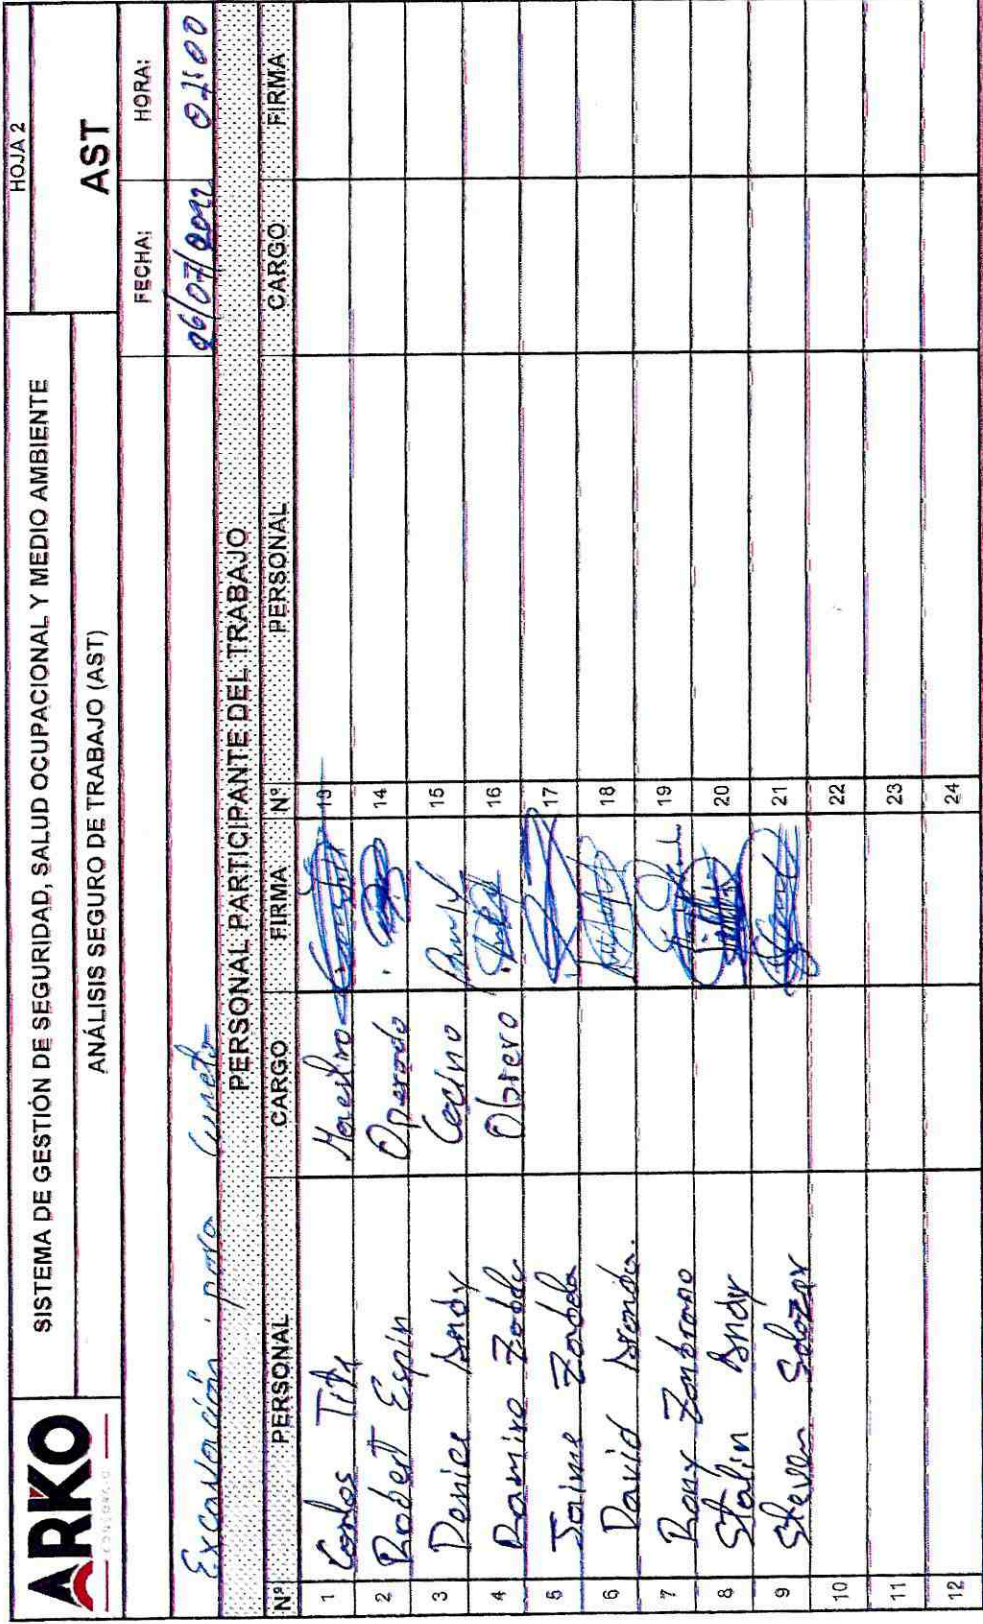 ARKO
SISTEMA DE GESTIÓN DE SEGURIDAD, SALUD OCUPACIONAL Y MEDIO AMBIENTE
HOJA 2
ANÁLISIS SEGURO DE TRABAJO (AST)
AST
FECHA: HORA:
Excavación para Cuneta 06/07/2022
PERSONAL PARTICIPANTE DEL TRABAJO
Nº PERSONAL CARGO FIRMA Nº PERSONAL CARGO FIRMA
1 Carlos Maestro 13
2 Robert Espin Operado 14
3 Andy 15
4 Ramiro Obrero 16
5 Jaime 17
6 David 18
7 Rony Zambrano 19
8 Stalin Andy 20
9 Steven Salazar 21
10 22
11 23
12 24